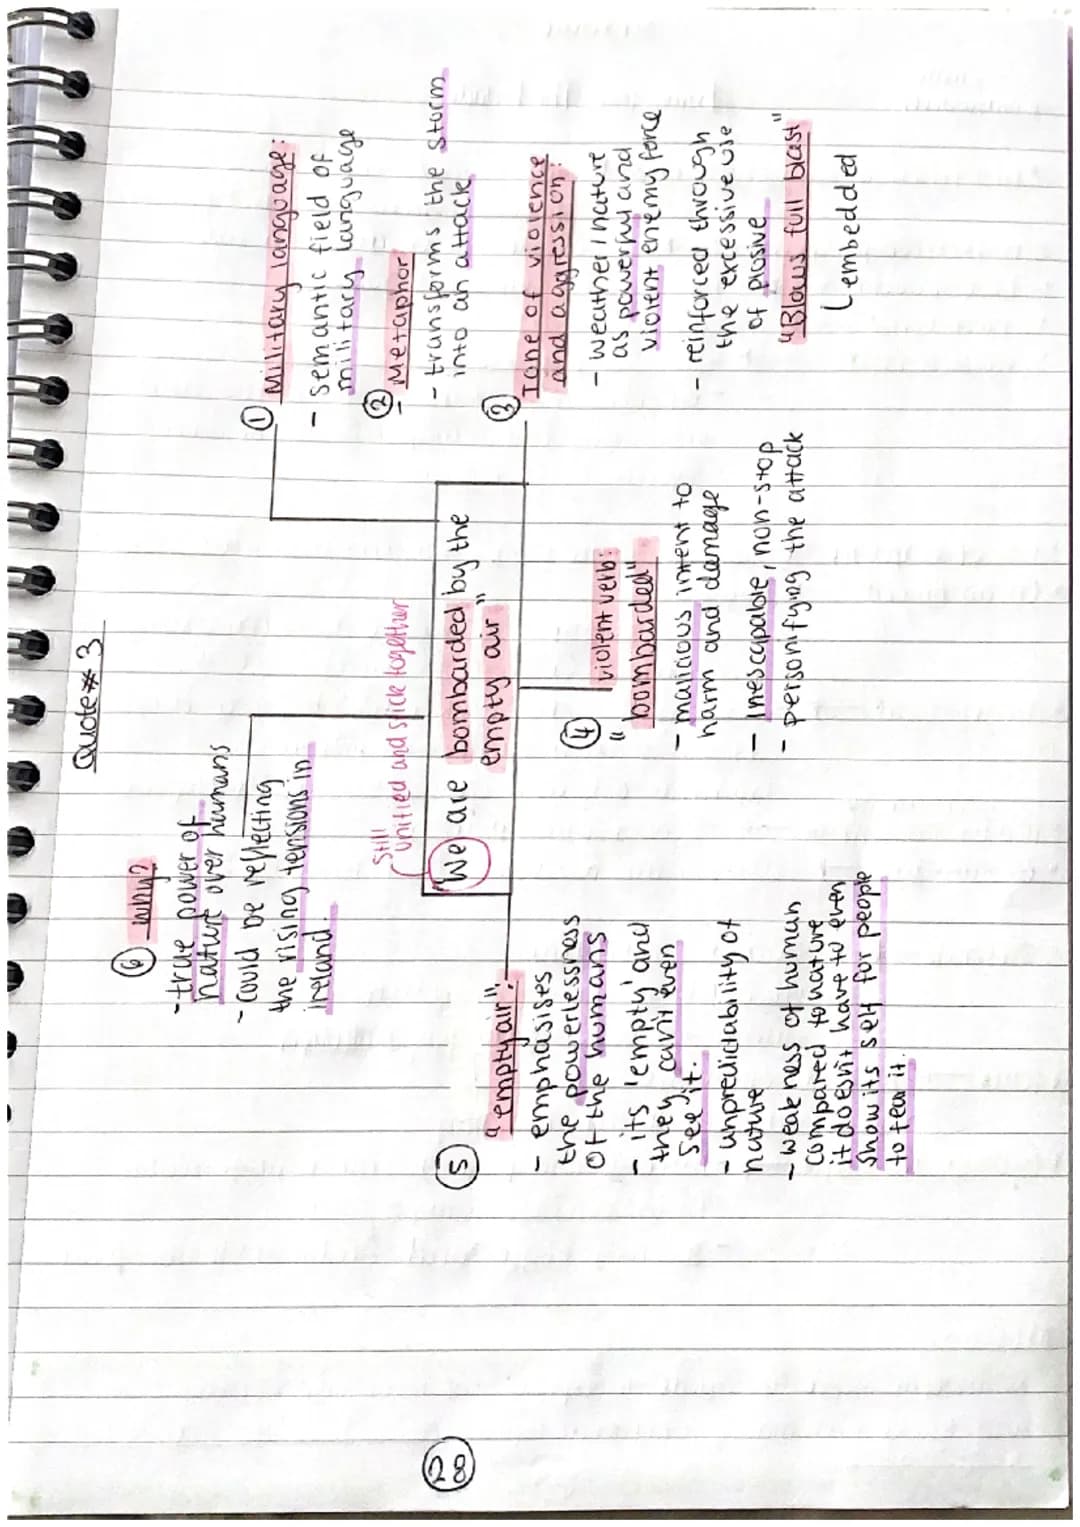 Quote # 3
① Military language:
- semantic field of
military language
②
- Metaphor
- transforms the storm
into an attack
③ Tone of violence
and aggression:
- weather / nature
as powerful and
violent enemy force
- reinforced through
the excessive use
of plosive
"Blows full blast"
embedded
④ violent verb:
"bombarded"
- malicious intent to
harm and damage
- Inescapable, non-stop
- personifying the attack
⑤ "empty air":
- emphasises
the powerlessness
of the humans
- its 'empty' and
they can't even
see it.
- unpredictability of
nature
- weakness of human
compared to nature
it doesn't have to even
show its self for people
to fear it.
⑥ why?
- true power of
nature over humans
- could be reflecting
the rising tensions in
Ireland.
still
unified and stick together
"We are bombarded by the
empty air"
28